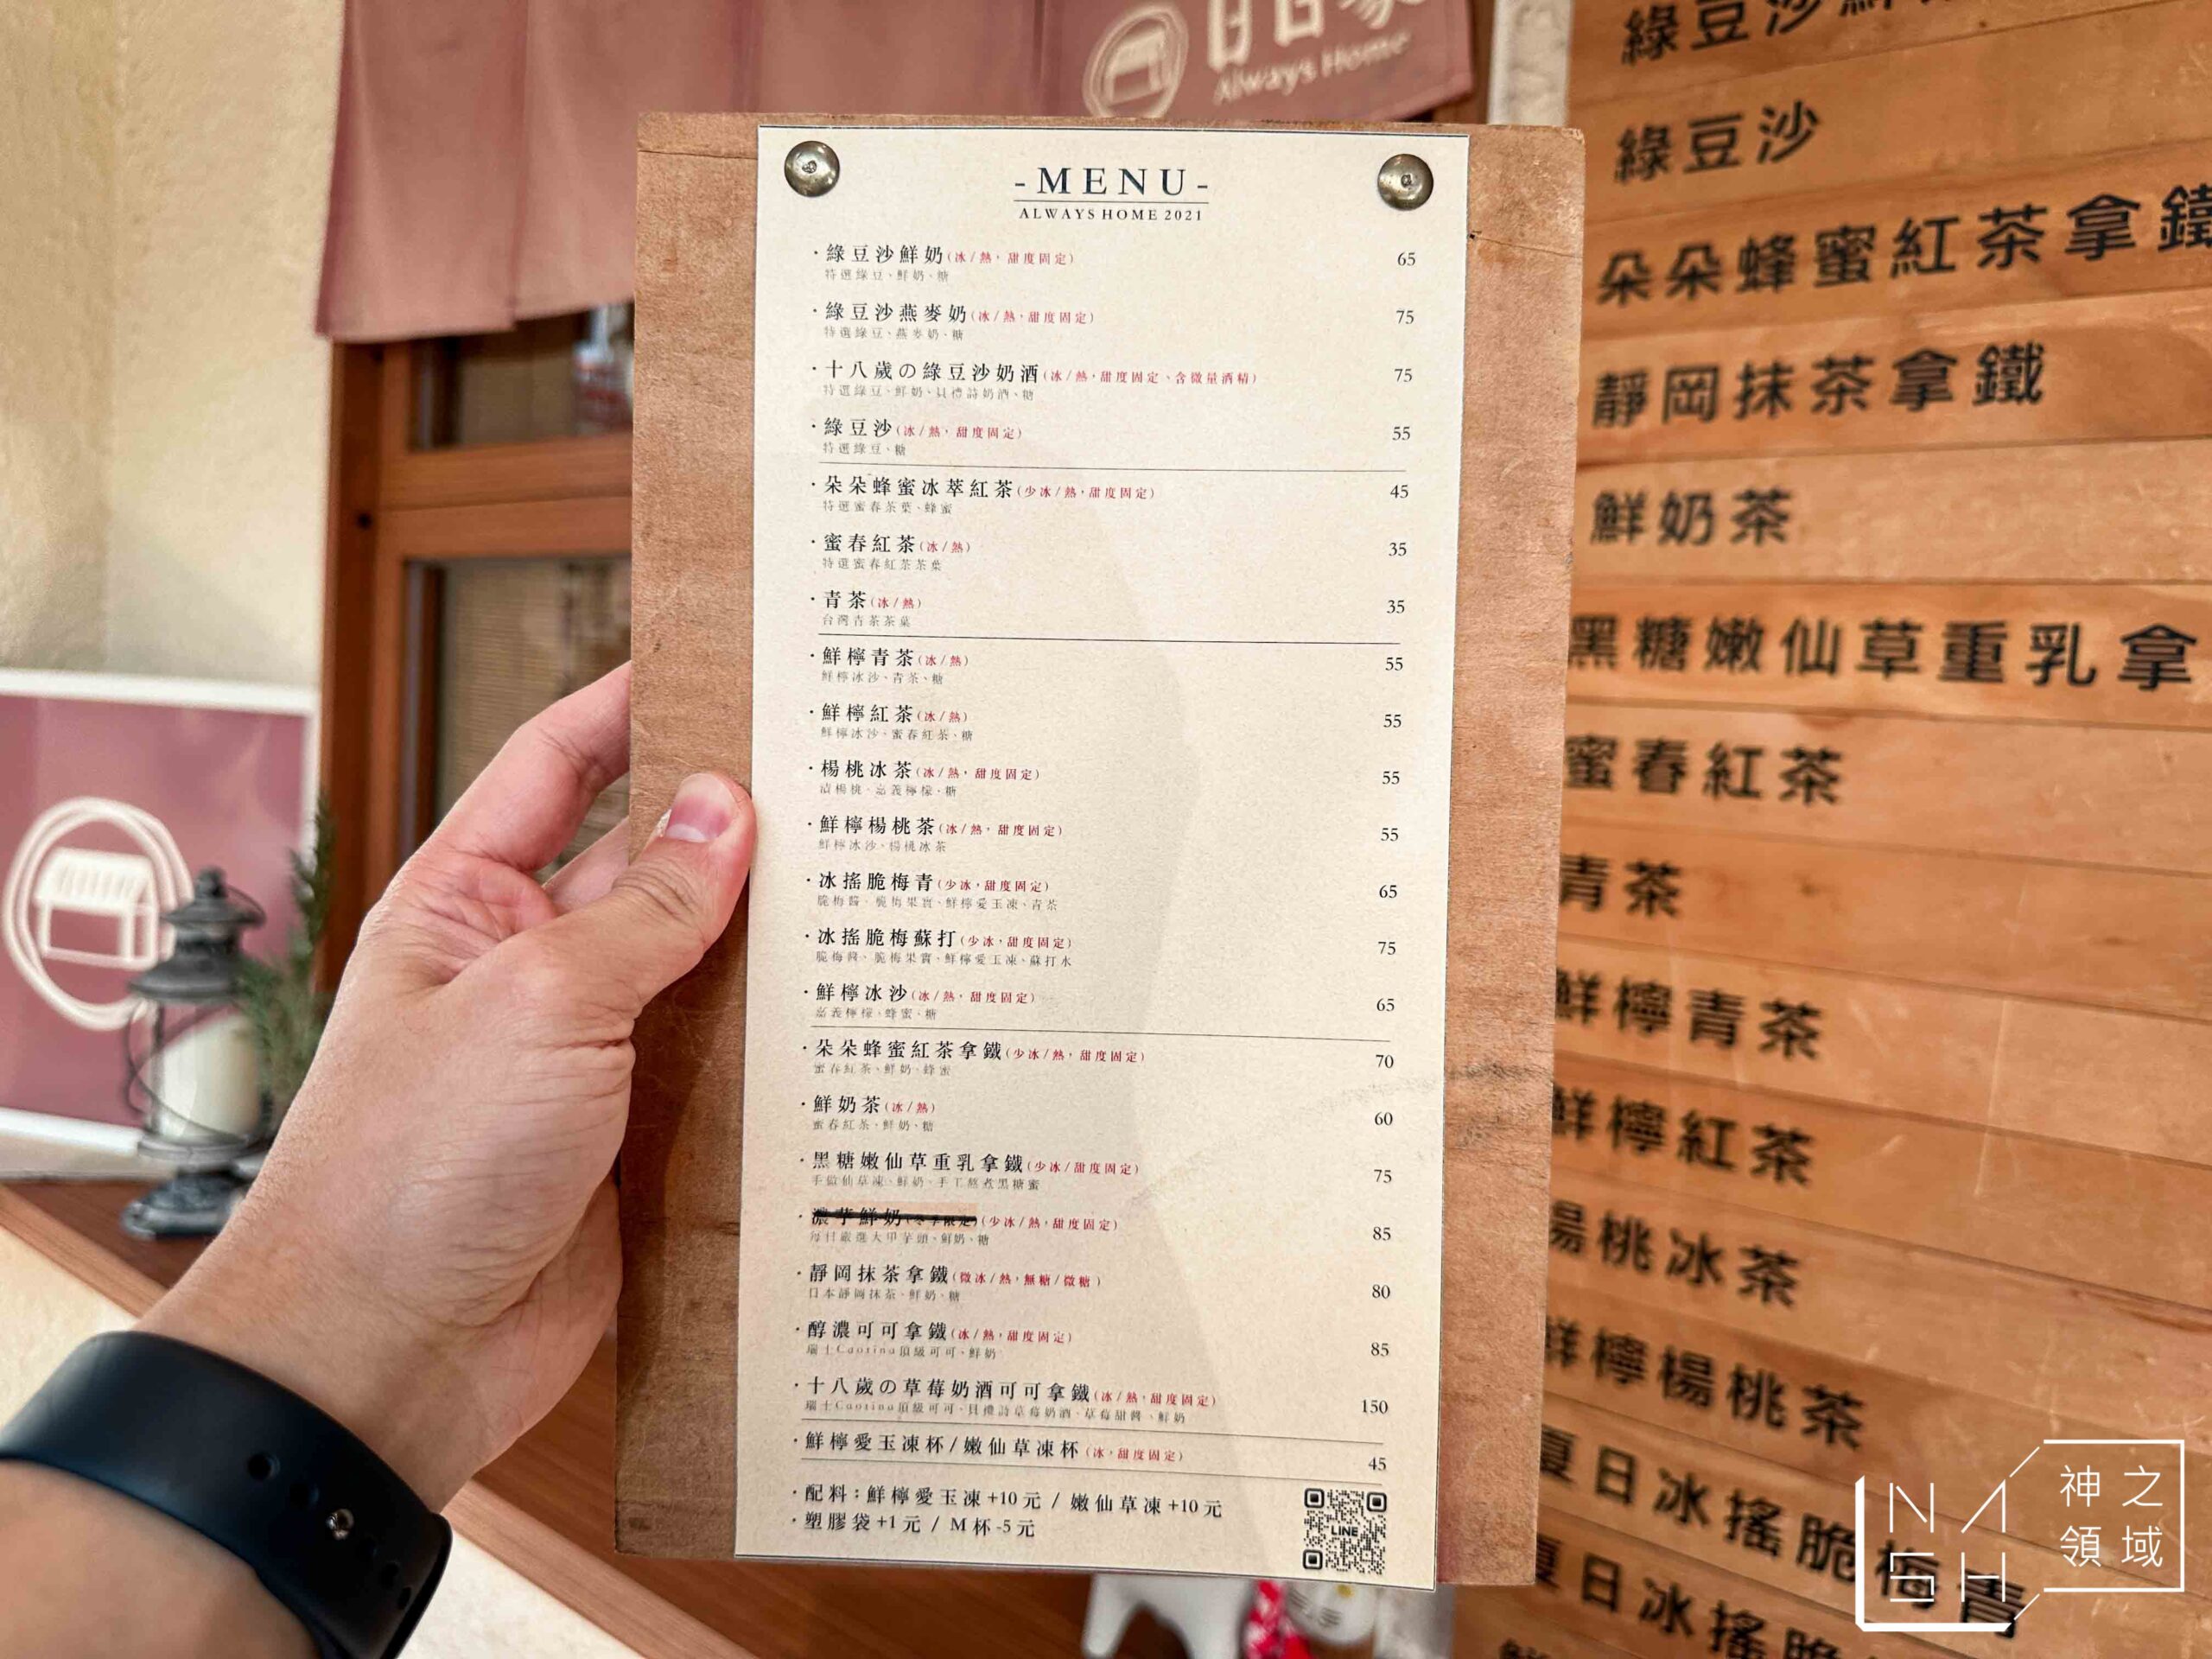 Always Home
-MENU-
ALWAYS HOME 2021
·綠豆沙鮮奶(冰/熱,甜度固定) 65
特選綠豆、鮮奶、糖
·綠豆沙燕麥奶(冰/熱,甜度固定) 75
特選綠豆、燕麥奶、糖
·十八歲の綠豆沙奶酒(冰/熱,甜度固定、含微量酒精) 75
特選綠豆、鮮奶、貝禮詩奶酒、糖
·綠豆沙(冰/熱,甜度固定) 55
特選綠豆、糖
·朵朵蜂蜜冰萃紅茶(少冰/熱,甜度固定) 45
特選蜜春茶葉、蜂蜜
·蜜春紅茶(冰/熱) 35
特選蜜春紅茶茶葉
·青茶(冰/熱) 35
台灣青茶茶葉
·鮮檸青茶(冰/熱) 55
鮮檸冰沙、青茶、糖
·鮮檸紅茶(冰/熱) 55
鮮檸冰沙、蜜春紅茶、糖
·楊桃冰茶(冰/熱,甜度固定) 55
漬楊桃、嘉義檸檬、糖
·鮮檸楊桃茶(冰/熱,甜度固定) 55
鮮檸冰沙、楊桃冰茶
·冰搖脆梅青(少冰,甜度固定) 65
脆梅醬、脆梅果實、鮮檸愛玉凍、青茶
·冰搖脆梅蘇打(少冰,甜度固定) 75
脆梅醬、脆梅果實、鮮檸愛玉凍、蘇打水
·鮮檸冰沙(冰/熱,甜度固定) 65
嘉義檸檬、蜂蜜、糖
·朵朵蜂蜜紅茶拿鐵(少冰/熱,甜度固定) 70
蜜春紅茶、鮮奶、蜂蜜
·鮮奶茶(冰/熱) 60
蜜春紅茶、鮮奶、糖
·黑糖嫩仙草重乳拿鐵(少冰/甜度固定) 75
手做仙草凍、鮮奶、手工熬煮黑糖蜜
·濃芋鮮奶(冬季限定)(少冰/熱,甜度固定) 85
每日嚴選大甲芋頭、鮮奶、糖
·靜岡抹茶拿鐵(微冰/熱,無糖/微糖) 80
日本靜岡抹茶、鮮奶、糖
·醇濃可可拿鐵(冰/熱,甜度固定) 85
瑞士Caotina頂級可可、鮮奶
·十八歲の草莓奶酒可可拿鐵(冰/熱,甜度固定) 150
瑞士Caotina頂級可可、貝禮詩草莓奶酒、草莓甜醬、鮮奶
·鮮檸愛玉凍杯/嫩仙草凍杯(冰,甜度固定) 45
·配料:鮮檸愛玉凍+10元 / 嫩仙草凍+10元
·塑膠袋+1元 / M杯-5元
LINE
綠豆沙鮮
綠豆沙
朵朵蜂蜜紅茶拿鐵
靜岡抹茶拿鐵
鮮奶茶
黑糖嫩仙草重乳拿
蜜春紅茶
青茶
鮮檸青茶
鮮檸紅茶
楊桃冰茶
鮮檸楊桃茶
夏日冰搖脆梅青
夏日冰搖脆
NASH
神之
領域